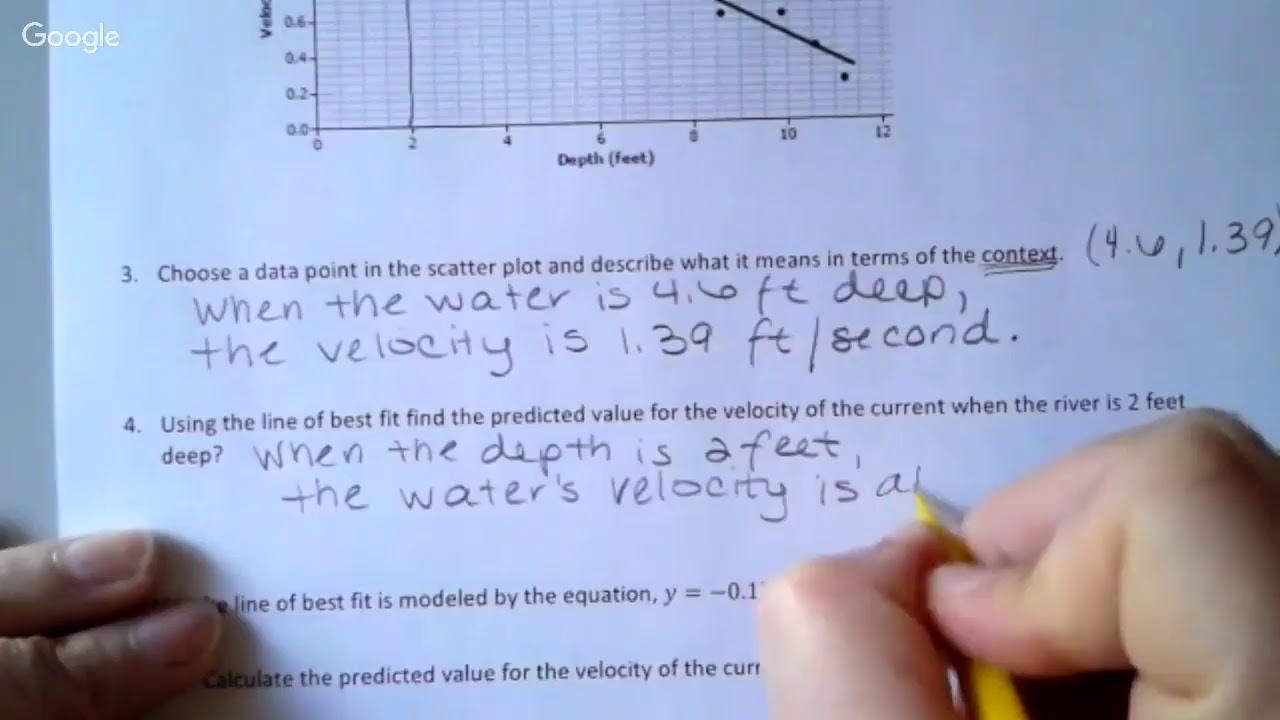 Google
0.6
0.4
0.2
0.0
0 2 4 6 8 10 12
Depth (feet)
3. Choose a data point in the scatter plot and describe what it means in terms of the context. (4.6, 1.39)
When the water is 4.6 ft deep,
the velocity is 1.39 ft/second.
4. Using the line of best fit find the predicted value for the velocity of the current when the river is 2 feet
deep? When the depth is 2 feet,
the water's velocity is
line of best fit is modeled by the equation, y = −0.1
Calculate the predicted value for the velocity of the